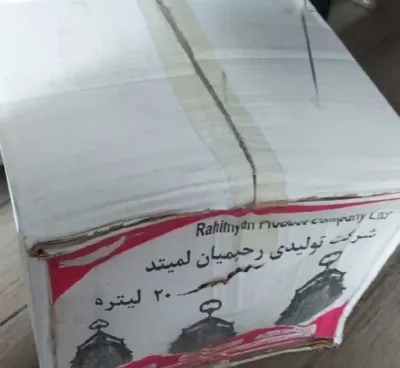 Rahimyan Product Company Ltd
شرکت تولیدی رحیمیان لمیتد
۲۰ لیتره